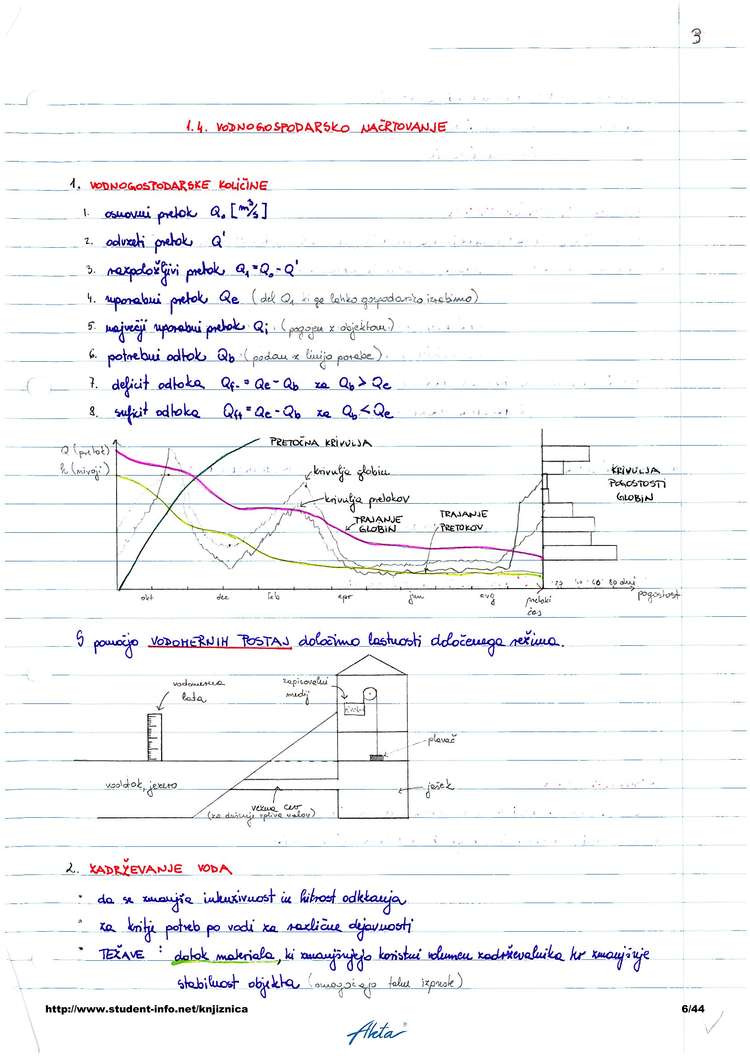 3
1.4. VODNOGOSPODARSKO NAČRTOVANJE
1. VODNOGOSPODARSKE KOLIČINE
1. osnovni pretok Q₀ [m³/s]
2. odvzeti pretok Q'
3. razpoložljivi pretok Q₁ = Q₀ - Q'
4. uporabni pretok Qe (del Q₁ ki ga lahko gospodarsko izrabimo)
5. največji uporabni pretok Qi (pogojen z objektom)
6. potrebni odtok Qb (podan z linijo porabe)
7. deficit odtoka Qf- = Qe - Qb za Qb > Qe
8. suficit odtoka Qf+ = Qe - Qb za Qb < Qe
Q (pretok)
h (nivoji)
PRETOČNA KRIVULJA
krivulja globin
krivulja pretokov
TRAJANJE GLOBIN
TRAJANJE PRETOKOV
KRIVULJA POGOSTOSTI GLOBIN
okt dec feb apr jun avg
pretoki
čas
dni
pogostost
S pomočjo VODOMERNIH POSTAJ določimo lastnosti določenega režima.
vodomerna lata
zapisovalni medij
plavač
vodotok, jezero
jašek
vezna cev
(za dušenje vpliva valov)
2. ZADRŽEVANJE VODA
• da se zmanjša intenzivnost in hitrost odtekanja
• za kritje potreb po vodi za različne dejavnosti
• TEŽAVE : dotok materiala, ki zmanjšujejo koristni volumen zadrževalnika ter zmanjšuje
stabilnost objekta (omogočajo talne izpuste)
http://www.student-info.net/knjiznica
6/44
Aleta